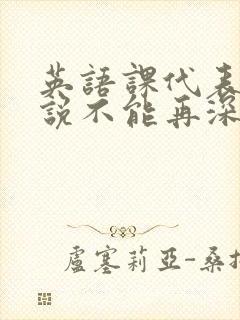 英語課代表
說不能再深
盧塞莉亞-桑